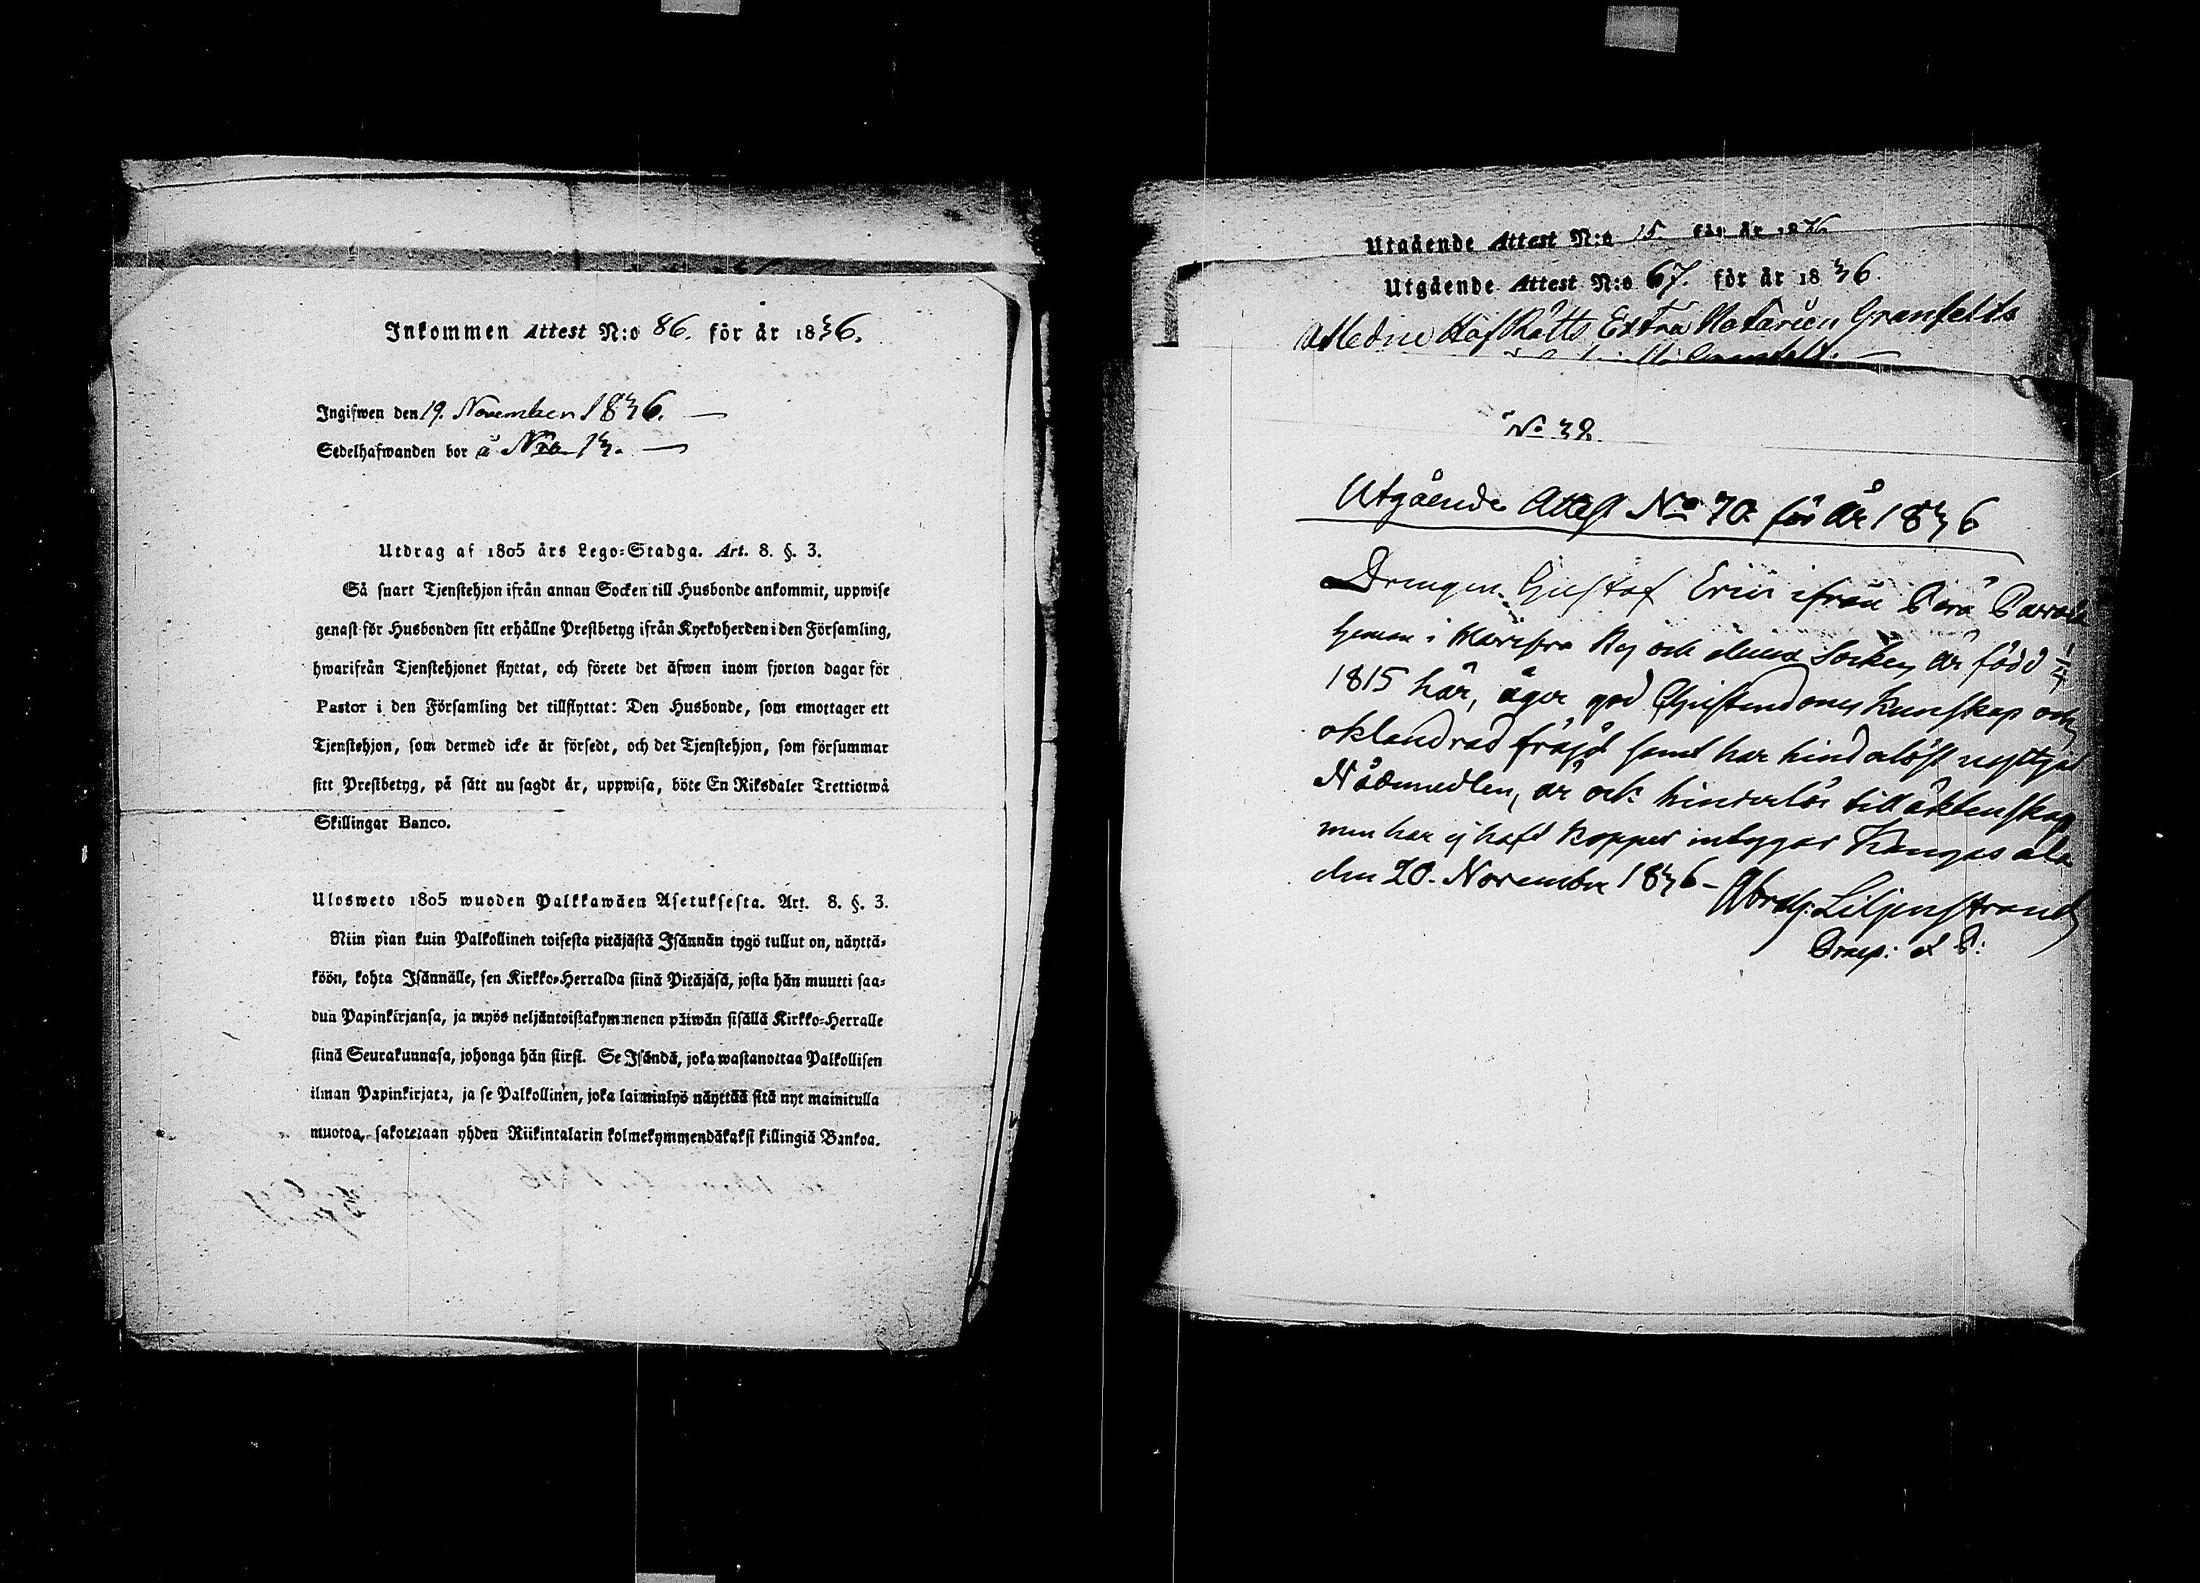 Inkommen Attest N:o 86. för år 1836.
Ingifwen den 19. November 1836. —
Sedelhafwanden bor å N:ro 13. —
Utdrag af 1805 års Lego-Stadga. Art. 8. §. 3.
Så snart Tjenstehjon ifrån annan Socken till Husbonde ankommit, uppwise
genast för Husbonden sitt erhållne Prestbetyg ifrån Kyrkoherden i den Församling,
hwarifrån Tjenstehjonet flyttat, och förete det äfwen inom fjorton dagar för
Pastor i den Församling det tillflyttat: Den Husbonde, som emottager ett
Tjenstehjon, som dermed icke är försedt, och det Tjenstehjon, som försummar
sitt Prestbetyg, på sätt nu sagdt är, uppwisa, böte En Riksdaler Trettiotwå
Skillingar Banco.
Ulosweto 1805 wuoden Palkkawäen Asetuksesta. Art. 8. §. 3.
Niin pian kuin Palkollinen toisesta pitäjästä Isännän tygö tullut on, näyttä-
köön, kohta Isännälle, sen Kirkko-Herralda siinä Pitäjäsä, josta hän muutti saa-
dun Papinkirjansa, ja myös neljäntoistakymmenen päiwän sisällä Kirkko-Herralle
siinä Seurakunnasa, johonga hän siirsi. Se Isändä, joka wastanottaa Palkollisen
ilman Papinkirjata, ja se Palkollinen, joka laiminlyö näyttää sitä nyt mainitulla
muotoa, sakotetaan yhden Riikintalarin kolmekymmendäkaksi killingiä Bankoa.
Utgående Attest N:o 15. för år 1836
Utgående Attest N:o 67. för år 1836.
Hof Rätts Extra Notarien Granfelts
N:o 32.
Utgående Attest No 70. för år 1836
Drengen Gustaf Eric ifrån Perä
hemman i by och denna Socken, är född
1815 här, äger god Christendoms kunskap och
oklandrad fräjd samt har hinderlöst nyttjat
Nådemedlen, är ock hinderlös till äktenskap
men har ej haft koppor intygar Kangasala
den 20. November 1836 – Liljenstrand
Praep: & P: